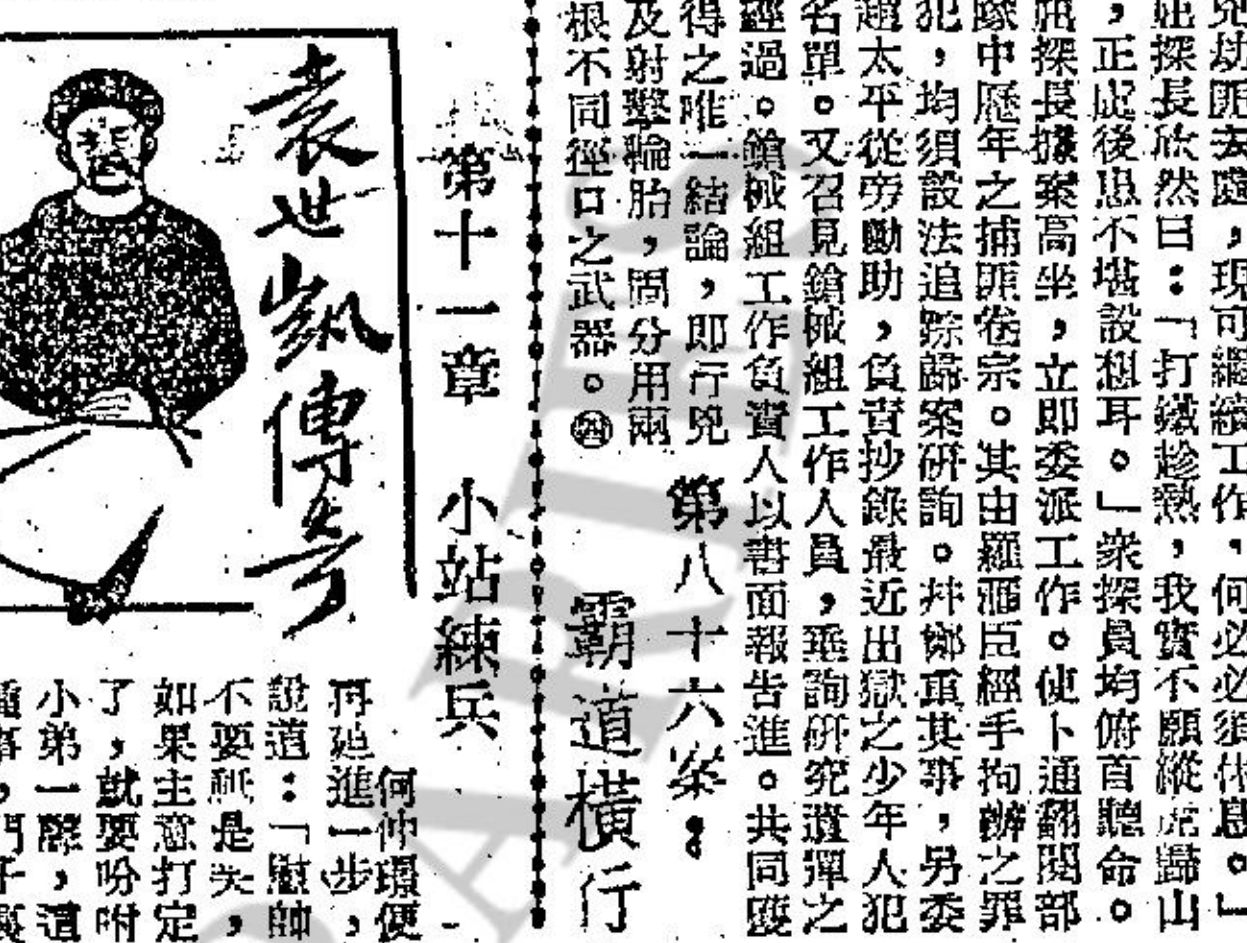 兇劫匪去處，現可繼續工作，何必必須休息。」
屈探長欣然曰：「打鐵趁熱，我實不願縱虎歸山
，正慮後患不堪設想耳。」衆探員均俯首聽命。
屈探長據案高坐，立即委派工作。使卜通翻閱部
隊中歷年之捕匪卷宗。其由羅臣經手拘辦之罪
犯，均須設法追踪歸案研詢。幷鄭重其事，另委
趙太平從旁勷助，負責抄錄最近出獄之少年人犯
名單。又召見鎗械組工作人員，垂詢研究遺彈之
經過。鎗械組工作負責人以書面報告進。共同獲
得之唯一結論，即行兇
及射擊輪胎，間分用兩
根不同徑口之武器。㊃
第八十六案：
霸道橫行
袁世凱傳奇
第十一章　小站練兵
何仲璟便
再進一步，
說道：「慰帥
不要祇是失，
如果主意打定
了，就要吩咐
小弟一聲，這